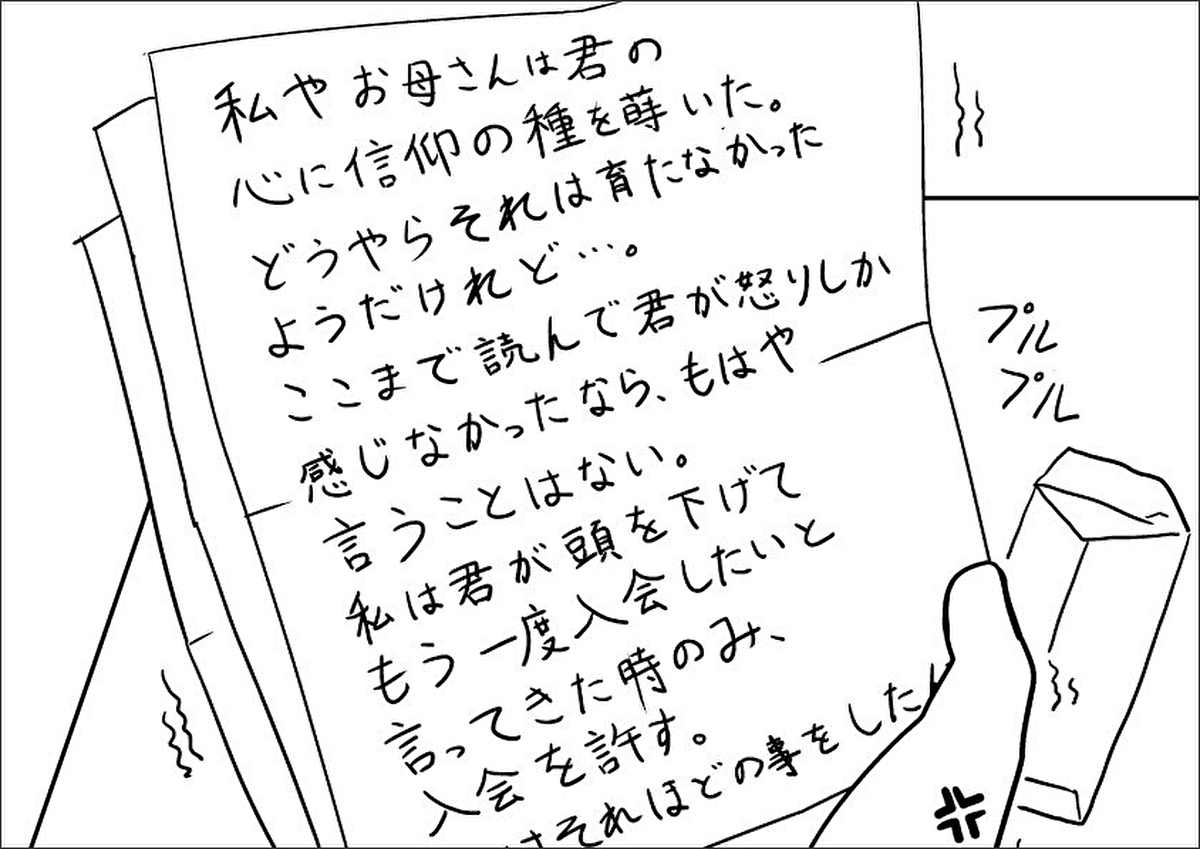 私やお母さんは君の
心に信仰の種を蒔いた。
どうやらそれは育たなかった
ようだけれど…。
ここまで読んで君が怒りしか
感じなかったなら、もはや
言うことはない。
私は君が頭を下げて
もう一度入会したいと
言ってきた時のみ、
入会を許す。
それほどの事をした
プル
プル